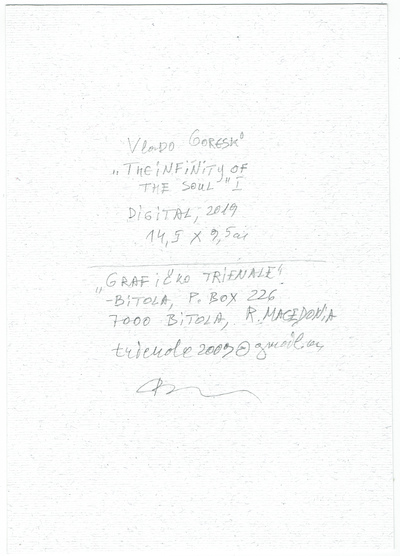 Vlado Goreski
„THE iNFiNiTy OF
THE SOUL" I
DIGITAL, 2019
14,5 X 9,5 cm
„GRAFIČKO TRIENALE"
-BiTOLA, P. BOX 226
7000 BITOLA, R. MACEDONiA
trienale2009@gmail.com